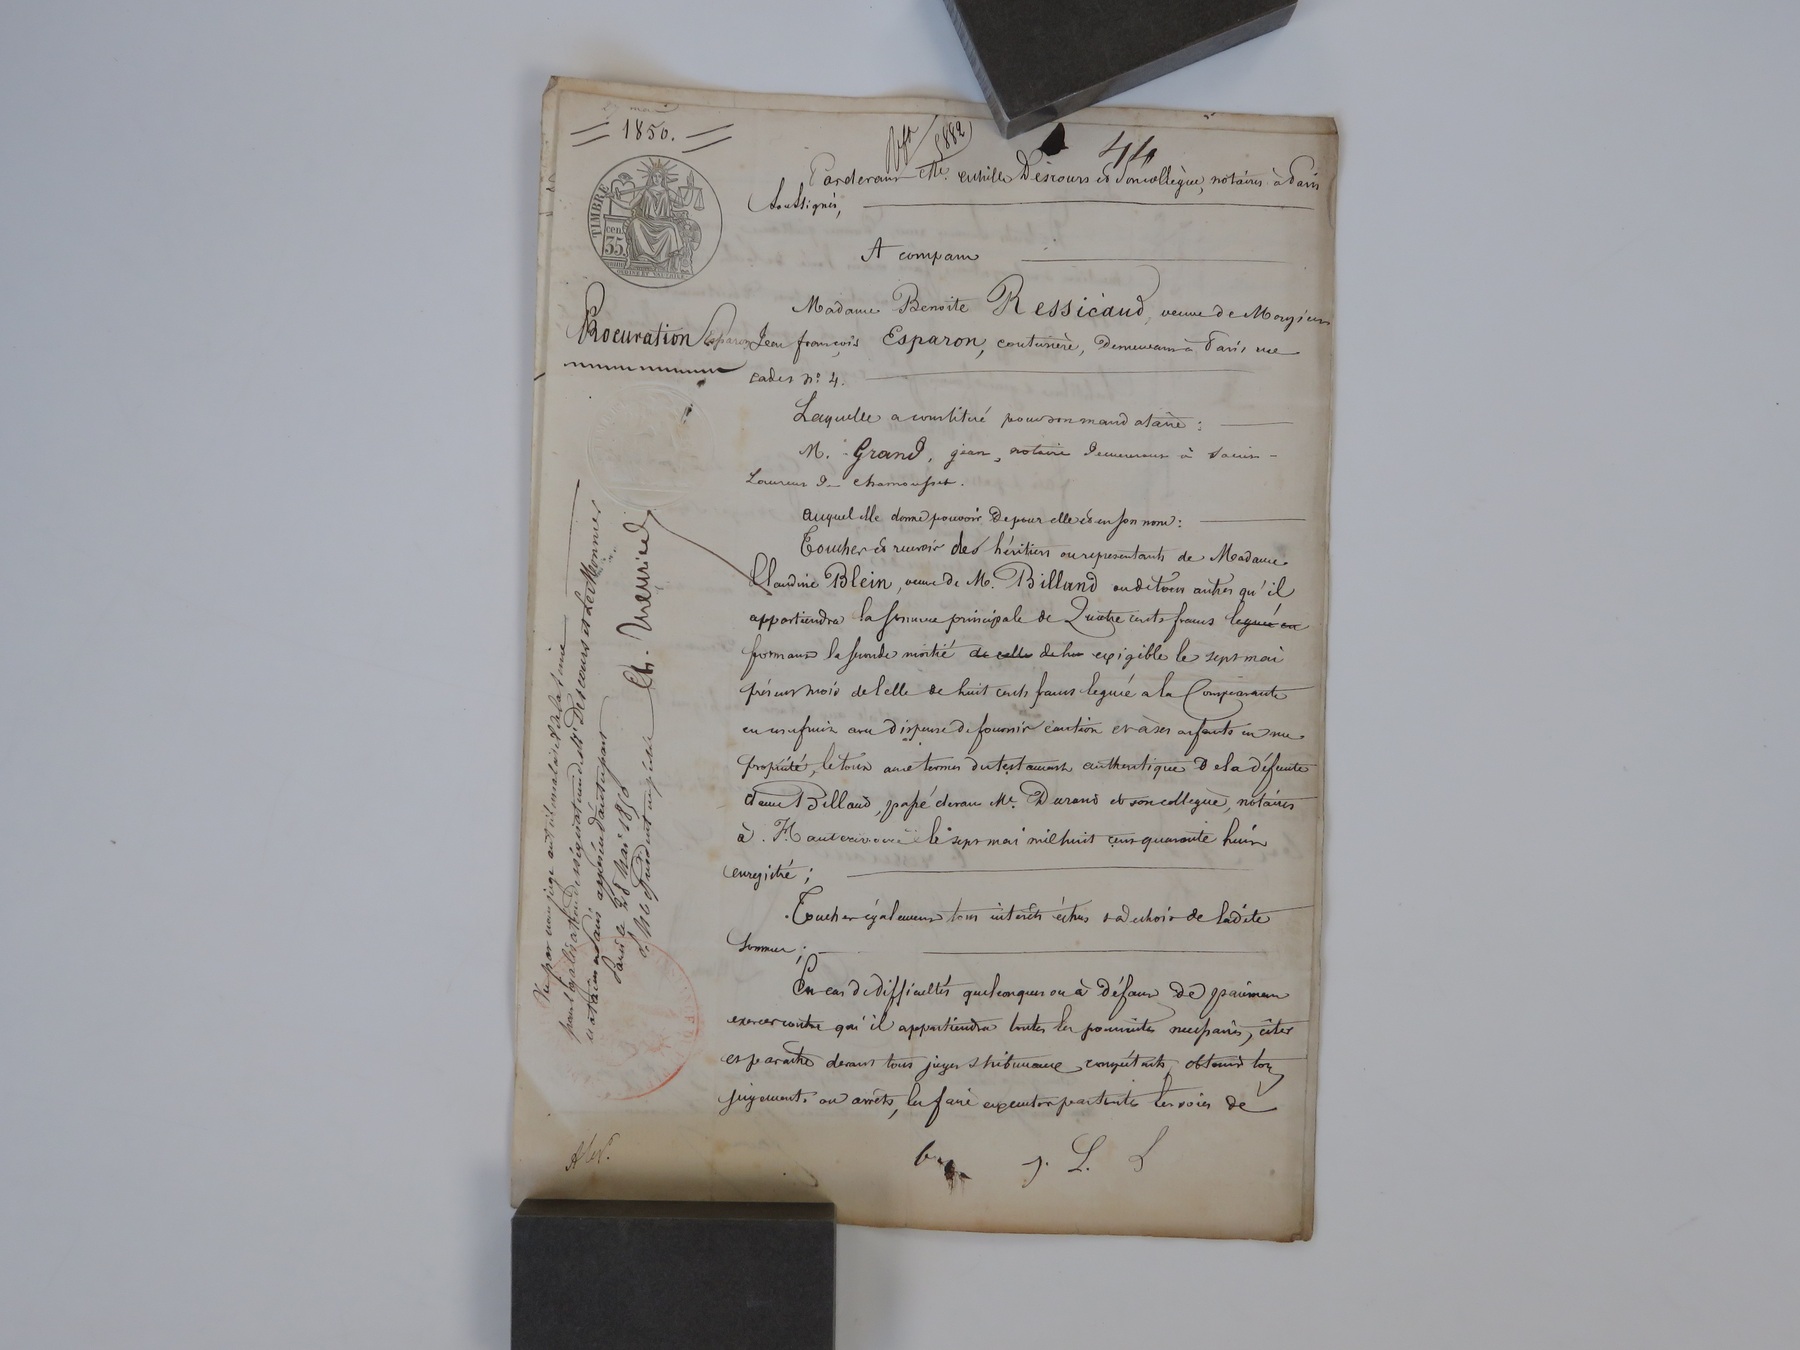 27 mai
1850.
5882
44
TIMBRE
cen.
35
Pardevant Me. Achille Descours et son collègue, notaires à Paris
soussignés,
A comparu
Madame Benoite Ressicaud, veuve de Monsieur
Procuration Esparon
Jean françois Esparon, couturière, demeurant à Paris, rue
cadet no. 4.
Laquelle a constitué pour son mandataire :
M. Grand, jean, notaire demeurant à Saint-
Laurent de chamousset.
auquel elle donne pouvoir de pour elle et en son nom :
Toucher et recevoir des héritiers ou representants de Madame
Claudine Blein, veuve de M. Billaud ou de tous autres qu'il
appartiendra la somme principale de Quatre cents francs legué en
formant la seconde moitié de celle de hu exigible le sept mai
présent mois de celle de huit cents francs legué a la Comparante
en usufruit avec dispense de fournir caution et à ses enfants en nue
propriété, le tout aux termes du testament authentique de la défunte
dame Billaud, passé devant Me. Durand et son collegue, notaires
à Hauterivoire le sept mai mil huit cent quarante huit
enregistré ;
Toucher également tous intérêts échus et à echoir de ladite
somme ;
En cas de difficultés quelconques ou à défaut de paiement
exercer contre qui il appartiendra toutes les poursuites necessaires, citer
et paraitre devant tous juges et tribunaux compétents, obtenir tous
jugements ou arrêts, les faire executer par toutes les voies de
j. L. L
Vu par nous juge au tribunal de la Seine
pour légalisation des signatures de Mrs Descours et Lemonnier
notaires à Paris apposées d'autre part
Paris le 28 Mai 1850
P. Mr le Président empêché